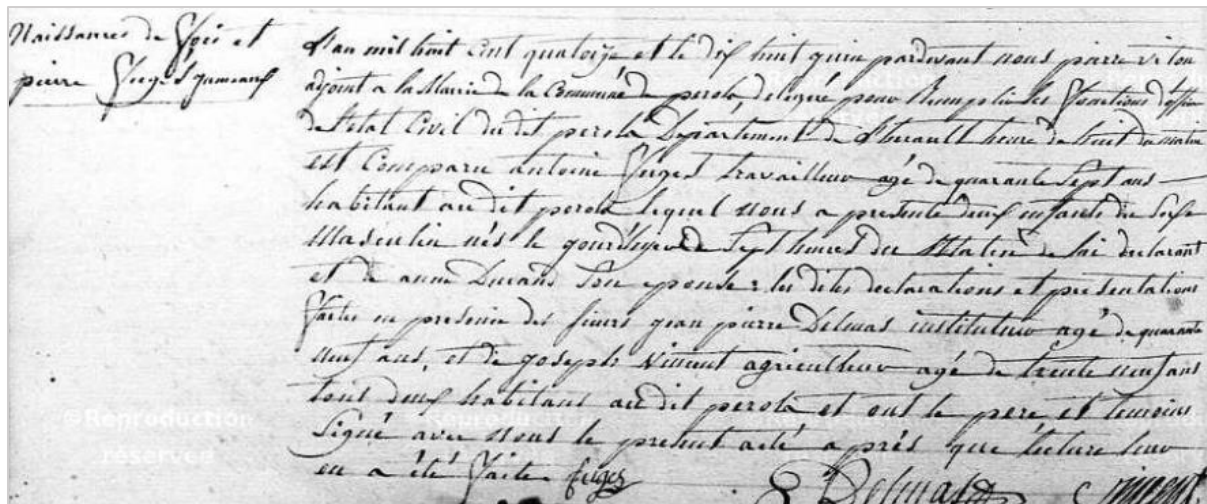 Naissances de
pierre jumeaux
L'an mil huit cent quatorze et le dix huit juin pardevant nous pierre viton
adjoint a la Mairie de la Commune de perols, delegué pour Remplir les fonctions d'offi
de l'etat Civil du dit perols Département de l'herault heure de huit du matin
est Comparu antoine travailleur agé de quarante Sept ans
habitant au dit perols lequel nous a presenté deux enfants du Sexe
Masculin nés le jourdhuy de Sept heures du Matin de lui declarant
et de anne Durand Son epouse : les dites declarations et presentations
faites en presence des sieurs jean pierre Delmas instituteur agé de quarante
neuf ans, et de joseph vincent agriculteur agé de trente neuf ans
tout deux habitant au dit perols et ont le pere et temoins
Signé avec nous le present acte après que lecture leur
en a été faite
Delmas vincent
©Reproduction
reserved